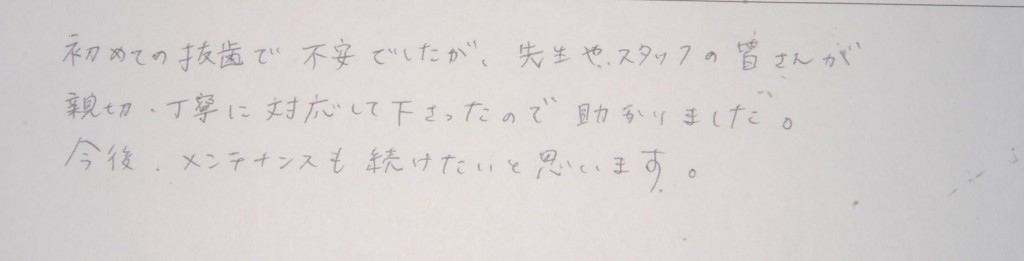 初めての抜歯で不安でしたが、先生や、スタッフの皆さんが
親切、丁寧に対応して下さったので助かりました。
今後、メンテナンスも続けたいと思います。